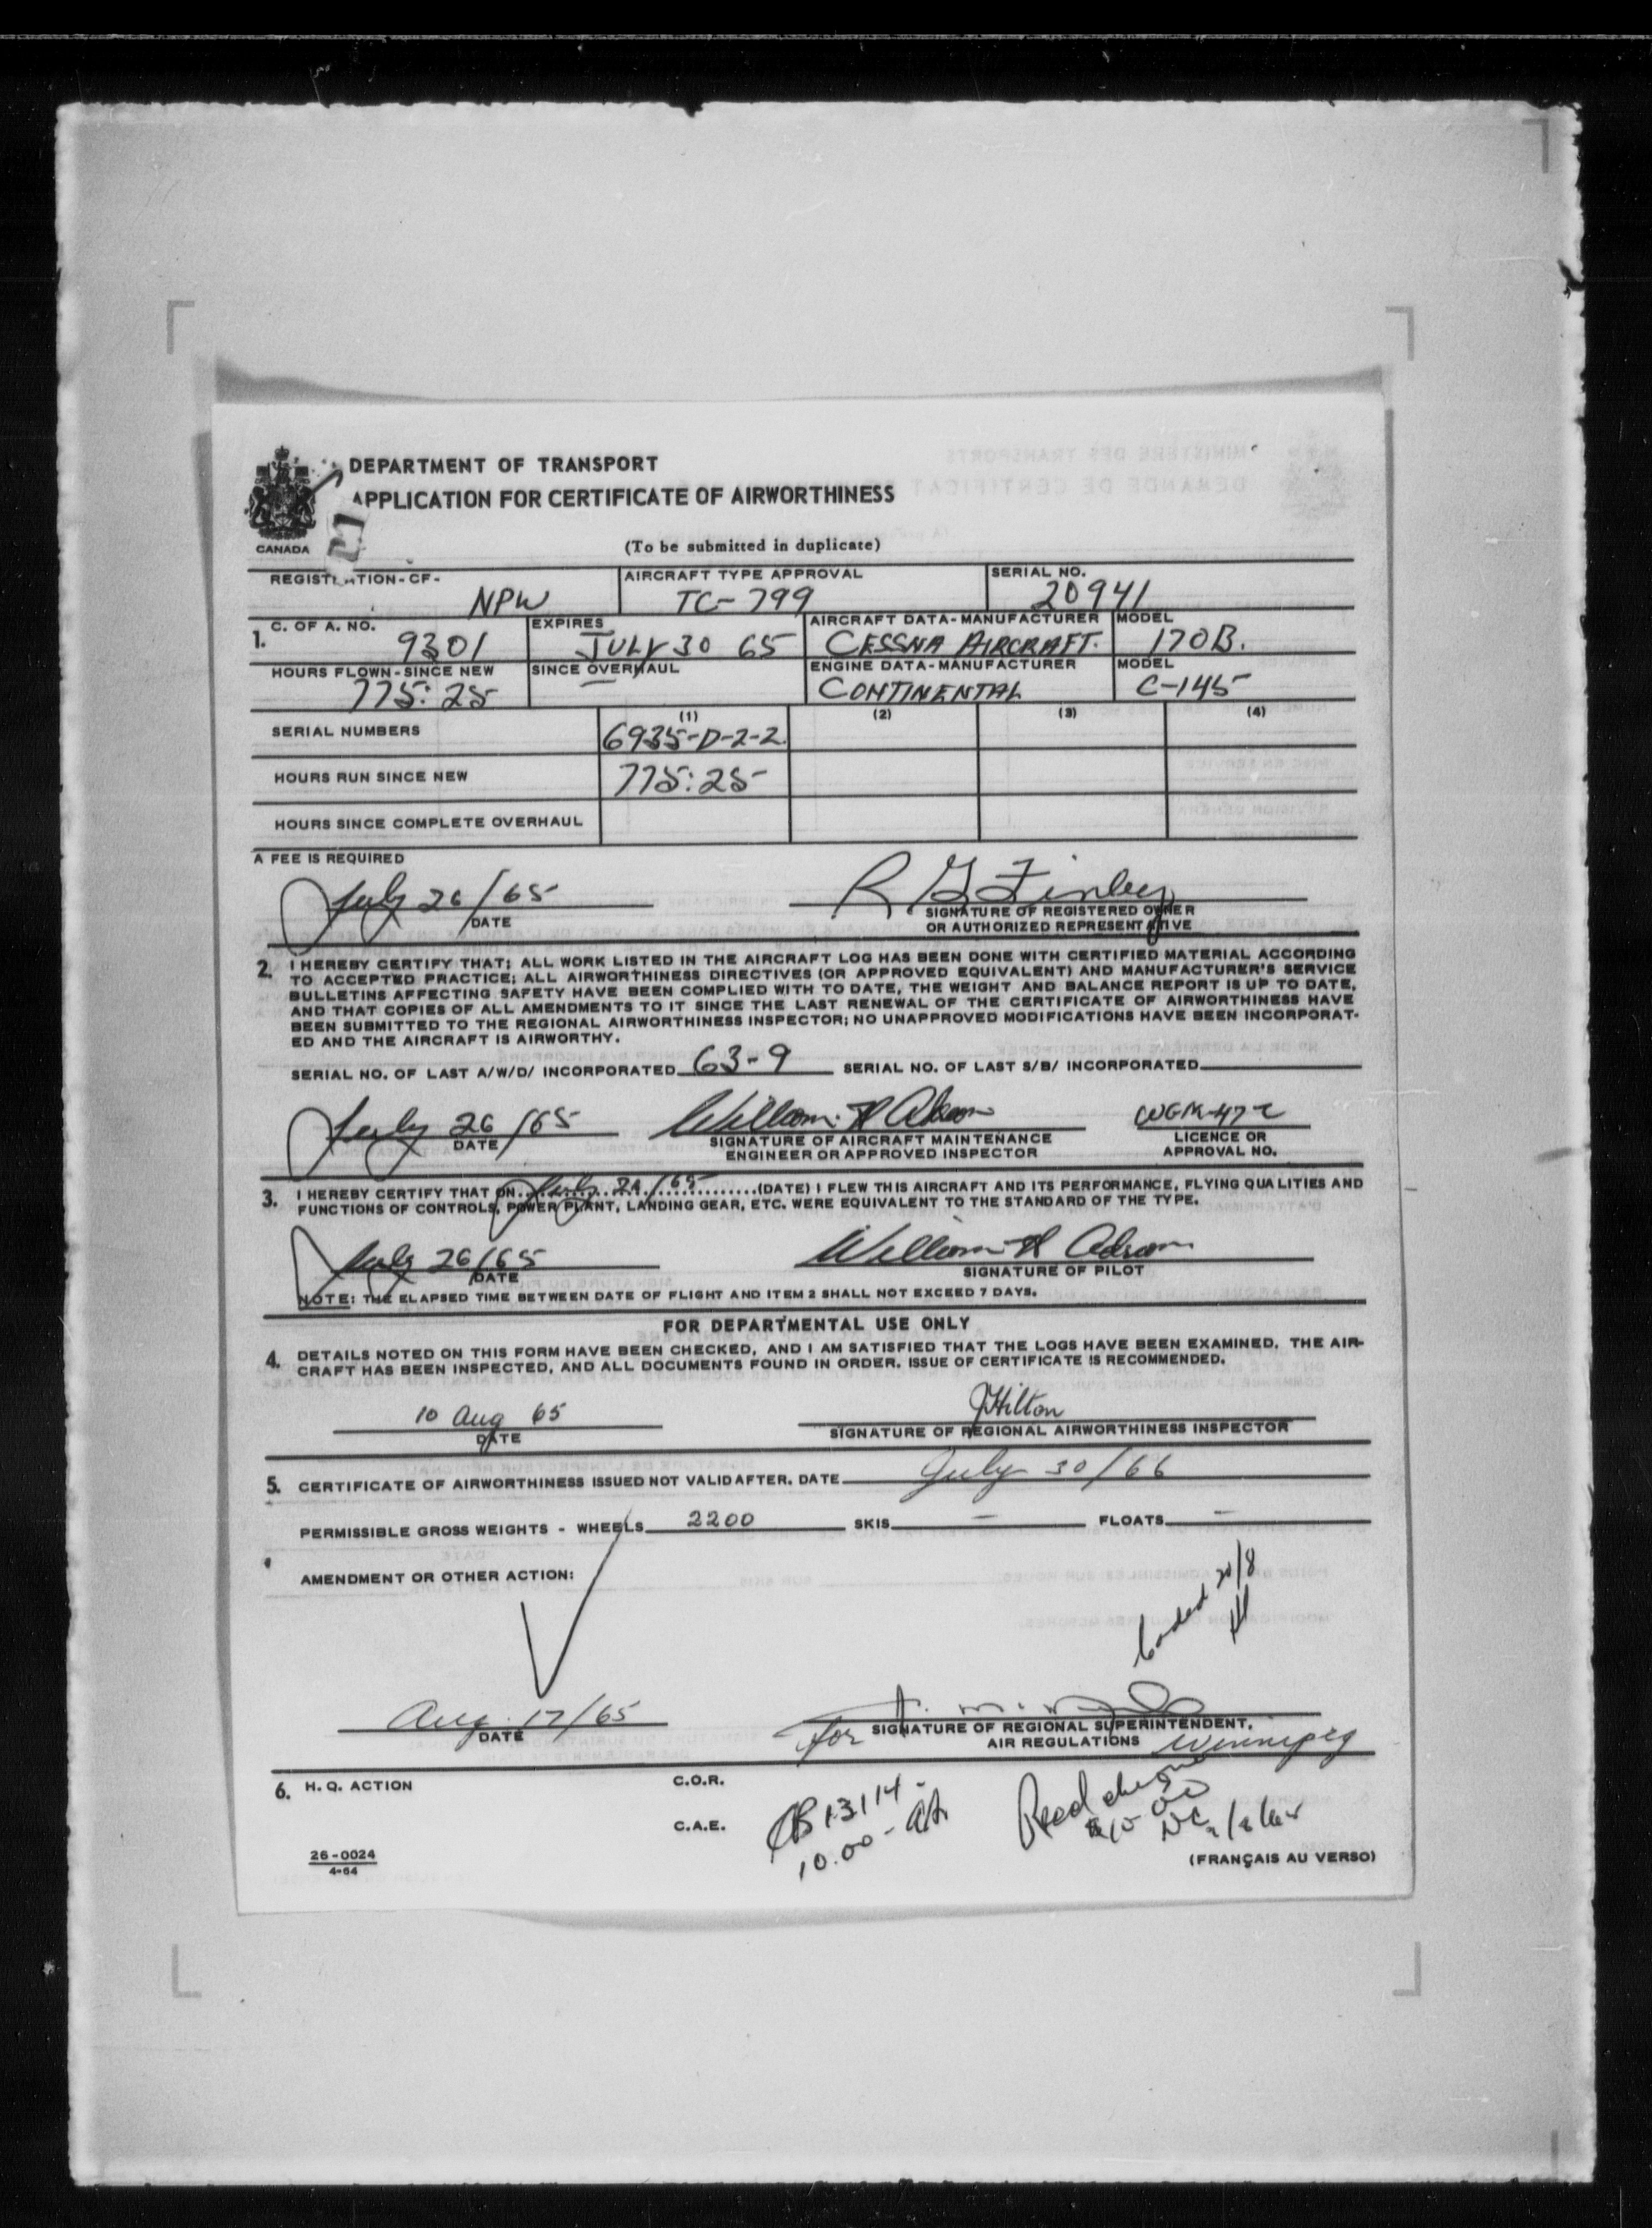 DEPARTMENT OF TRANSPORT
APPLICATION FOR CERTIFICATE OF AIRWORTHINESS
CANADA
(To be submitted in duplicate)
REGISTRATION-CF- NPW AIRCRAFT TYPE APPROVAL TC-799 SERIAL NO. 20941
1. C. OF A. NO. 9301 EXPIRES JULY 30 65 AIRCRAFT DATA-MANUFACTURER CESSNA AIRCRAFT. MODEL 170B.
HOURS FLOWN-SINCE NEW 775:25 SINCE OVERHAUL — ENGINE DATA-MANUFACTURER CONTINENTAL MODEL C-145
(1) (2) (3) (4)
SERIAL NUMBERS 6935-D-2-2
HOURS RUN SINCE NEW 775:25
HOURS SINCE COMPLETE OVERHAUL
A FEE IS REQUIRED
July 26/65 R G Finley
DATE SIGNATURE OF REGISTERED OWNER
OR AUTHORIZED REPRESENTATIVE
2. I HEREBY CERTIFY THAT; ALL WORK LISTED IN THE AIRCRAFT LOG HAS BEEN DONE WITH CERTIFIED MATERIAL ACCORDING
TO ACCEPTED PRACTICE; ALL AIRWORTHINESS DIRECTIVES (OR APPROVED EQUIVALENT) AND MANUFACTURER'S SERVICE
BULLETINS AFFECTING SAFETY HAVE BEEN COMPLIED WITH TO DATE, THE WEIGHT AND BALANCE REPORT IS UP TO DATE,
AND THAT COPIES OF ALL AMENDMENTS TO IT SINCE THE LAST RENEWAL OF THE CERTIFICATE OF AIRWORTHINESS HAVE
BEEN SUBMITTED TO THE REGIONAL AIRWORTHINESS INSPECTOR; NO UNAPPROVED MODIFICATIONS HAVE BEEN INCORPORAT-
ED AND THE AIRCRAFT IS AIRWORTHY.
SERIAL NO. OF LAST A/W/D/ INCORPORATED 63-9 SERIAL NO. OF LAST S/B/ INCORPORATED
July 26/65 William
DATE SIGNATURE OF AIRCRAFT MAINTENANCE LICENCE OR
ENGINEER OR APPROVED INSPECTOR APPROVAL NO.
3. I HEREBY CERTIFY THAT ON July 26/65 (DATE) I FLEW THIS AIRCRAFT AND ITS PERFORMANCE, FLYING QUALITIES AND
FUNCTIONS OF CONTROLS, POWER PLANT, LANDING GEAR, ETC. WERE EQUIVALENT TO THE STANDARD OF THE TYPE.
July 26/65 William
DATE SIGNATURE OF PILOT
NOTE: THE ELAPSED TIME BETWEEN DATE OF FLIGHT AND ITEM 2 SHALL NOT EXCEED 7 DAYS.
FOR DEPARTMENTAL USE ONLY
4. DETAILS NOTED ON THIS FORM HAVE BEEN CHECKED, AND I AM SATISFIED THAT THE LOGS HAVE BEEN EXAMINED. THE AIR-
CRAFT HAS BEEN INSPECTED, AND ALL DOCUMENTS FOUND IN ORDER. ISSUE OF CERTIFICATE IS RECOMMENDED.
10 Aug 65 JHilton
DATE SIGNATURE OF REGIONAL AIRWORTHINESS INSPECTOR
5. CERTIFICATE OF AIRWORTHINESS ISSUED NOT VALID AFTER. DATE July 30/66
PERMISSIBLE GROSS WEIGHTS - WHEELS 2200 SKIS — FLOATS —
AMENDMENT OR OTHER ACTION:
Aug. 17/65
DATE for SIGNATURE OF REGIONAL SUPERINTENDENT,
AIR REGULATIONS Winnipeg
6. H. Q. ACTION C.O.R.
C.A.E. 13114
10.00
26-0024
4-64
(FRANÇAIS AU VERSO)